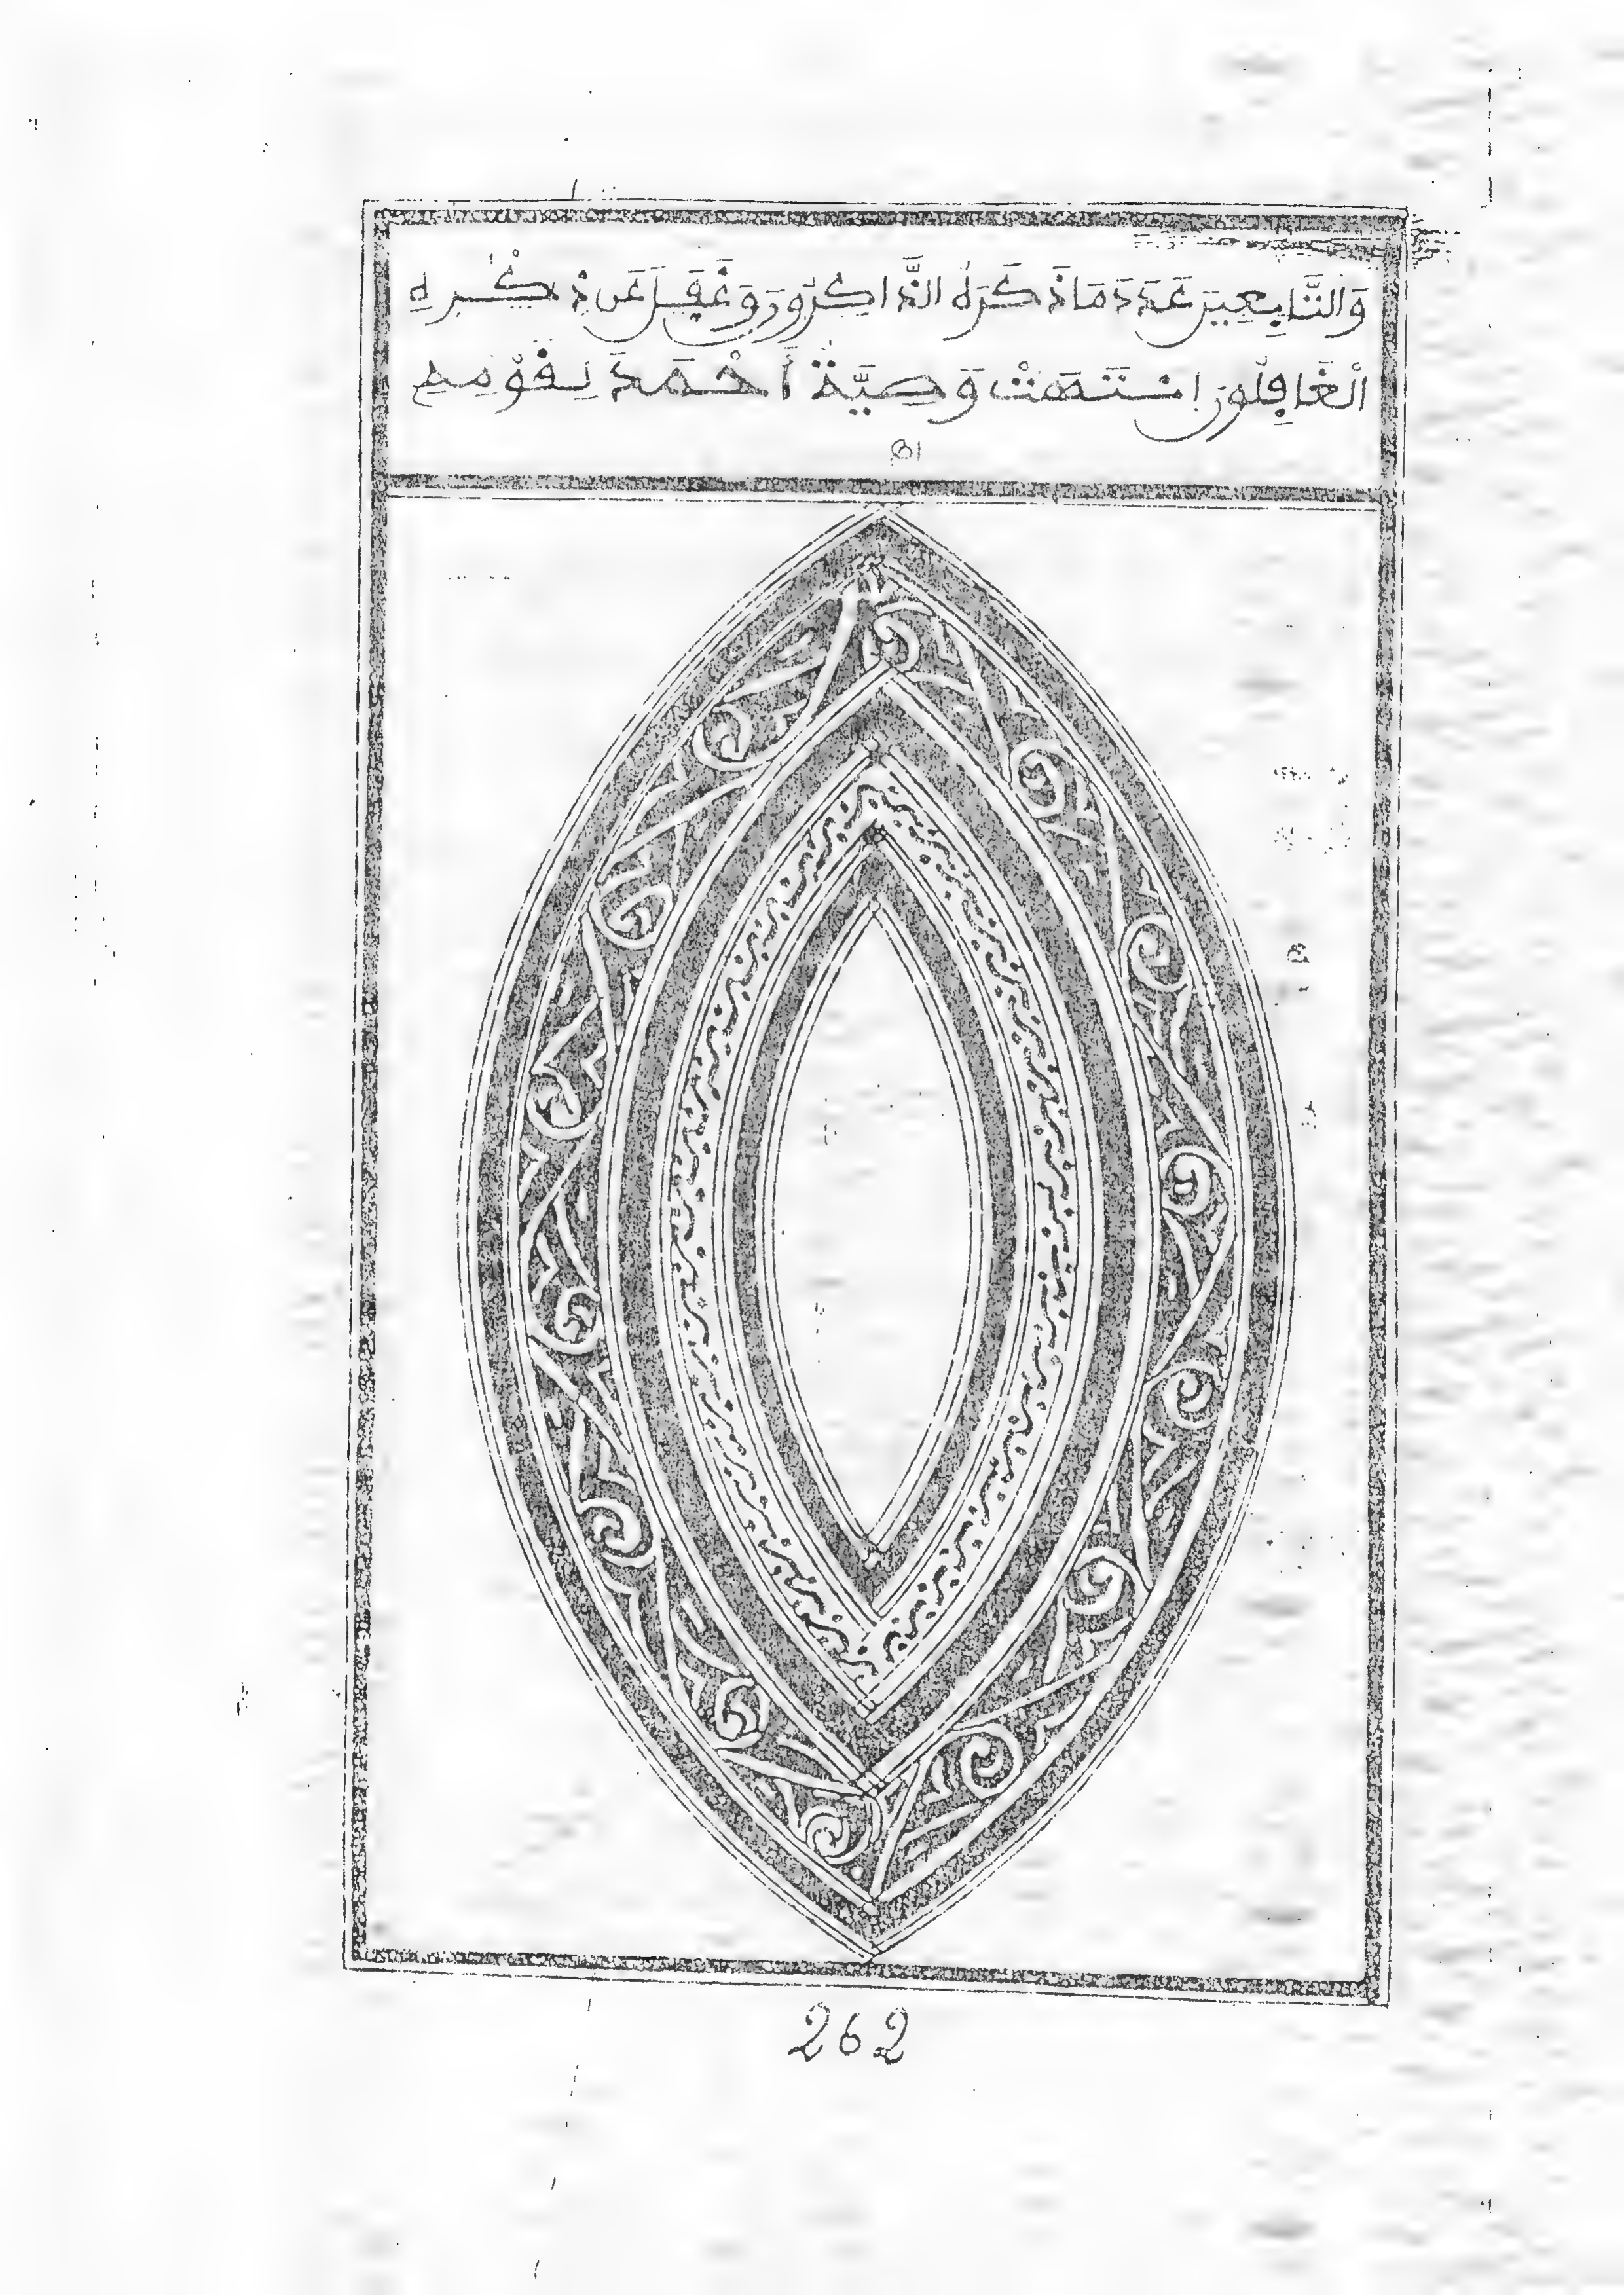 وَالتَّابِعِينَ عَدَدَ مَا ذَكَرَهُ الذَّاكِرُونَ وَغَفَلَ عَن ذِكْرِهِ
الْغَافِلُونَ اِنْتَهَتْ وَصِيَّةُ أَحْمَدَ لِقَوْمِهِ
262